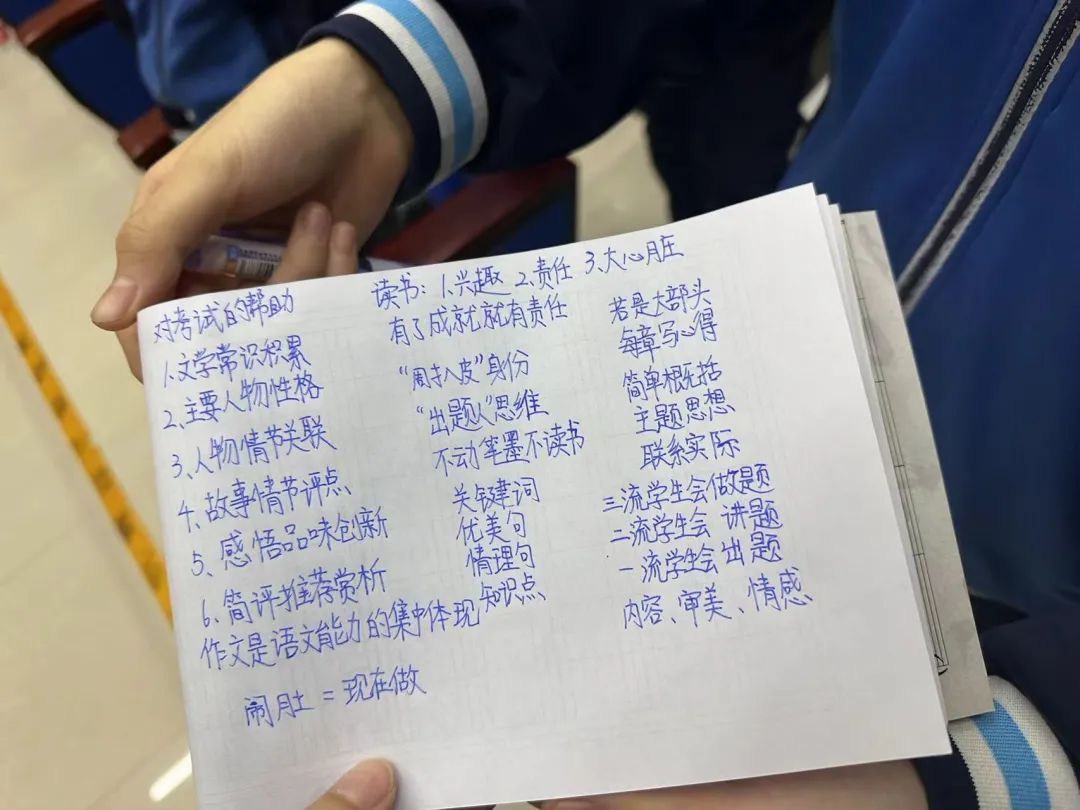 读书：1.兴趣 2.责任 3.大心脏
对考试的帮助
1.文学常识积累
2.主要人物性格
3、人物情节关联
4、故事情节评点
5、感悟品味创新
6.简评推荐赏析
作文是语文能力的集中体现
闹肚 = 现在做
有了成就就有责任
"周扒皮"身份
"出题人"思维
不动笔墨不读书
关键词
优美句
情理句
知识点
若是大部头
每章写心得
简单概括
主题思想
联系实际
三流学生会做题
二流学生会讲题
一流学生会出题
内容、审美、情感